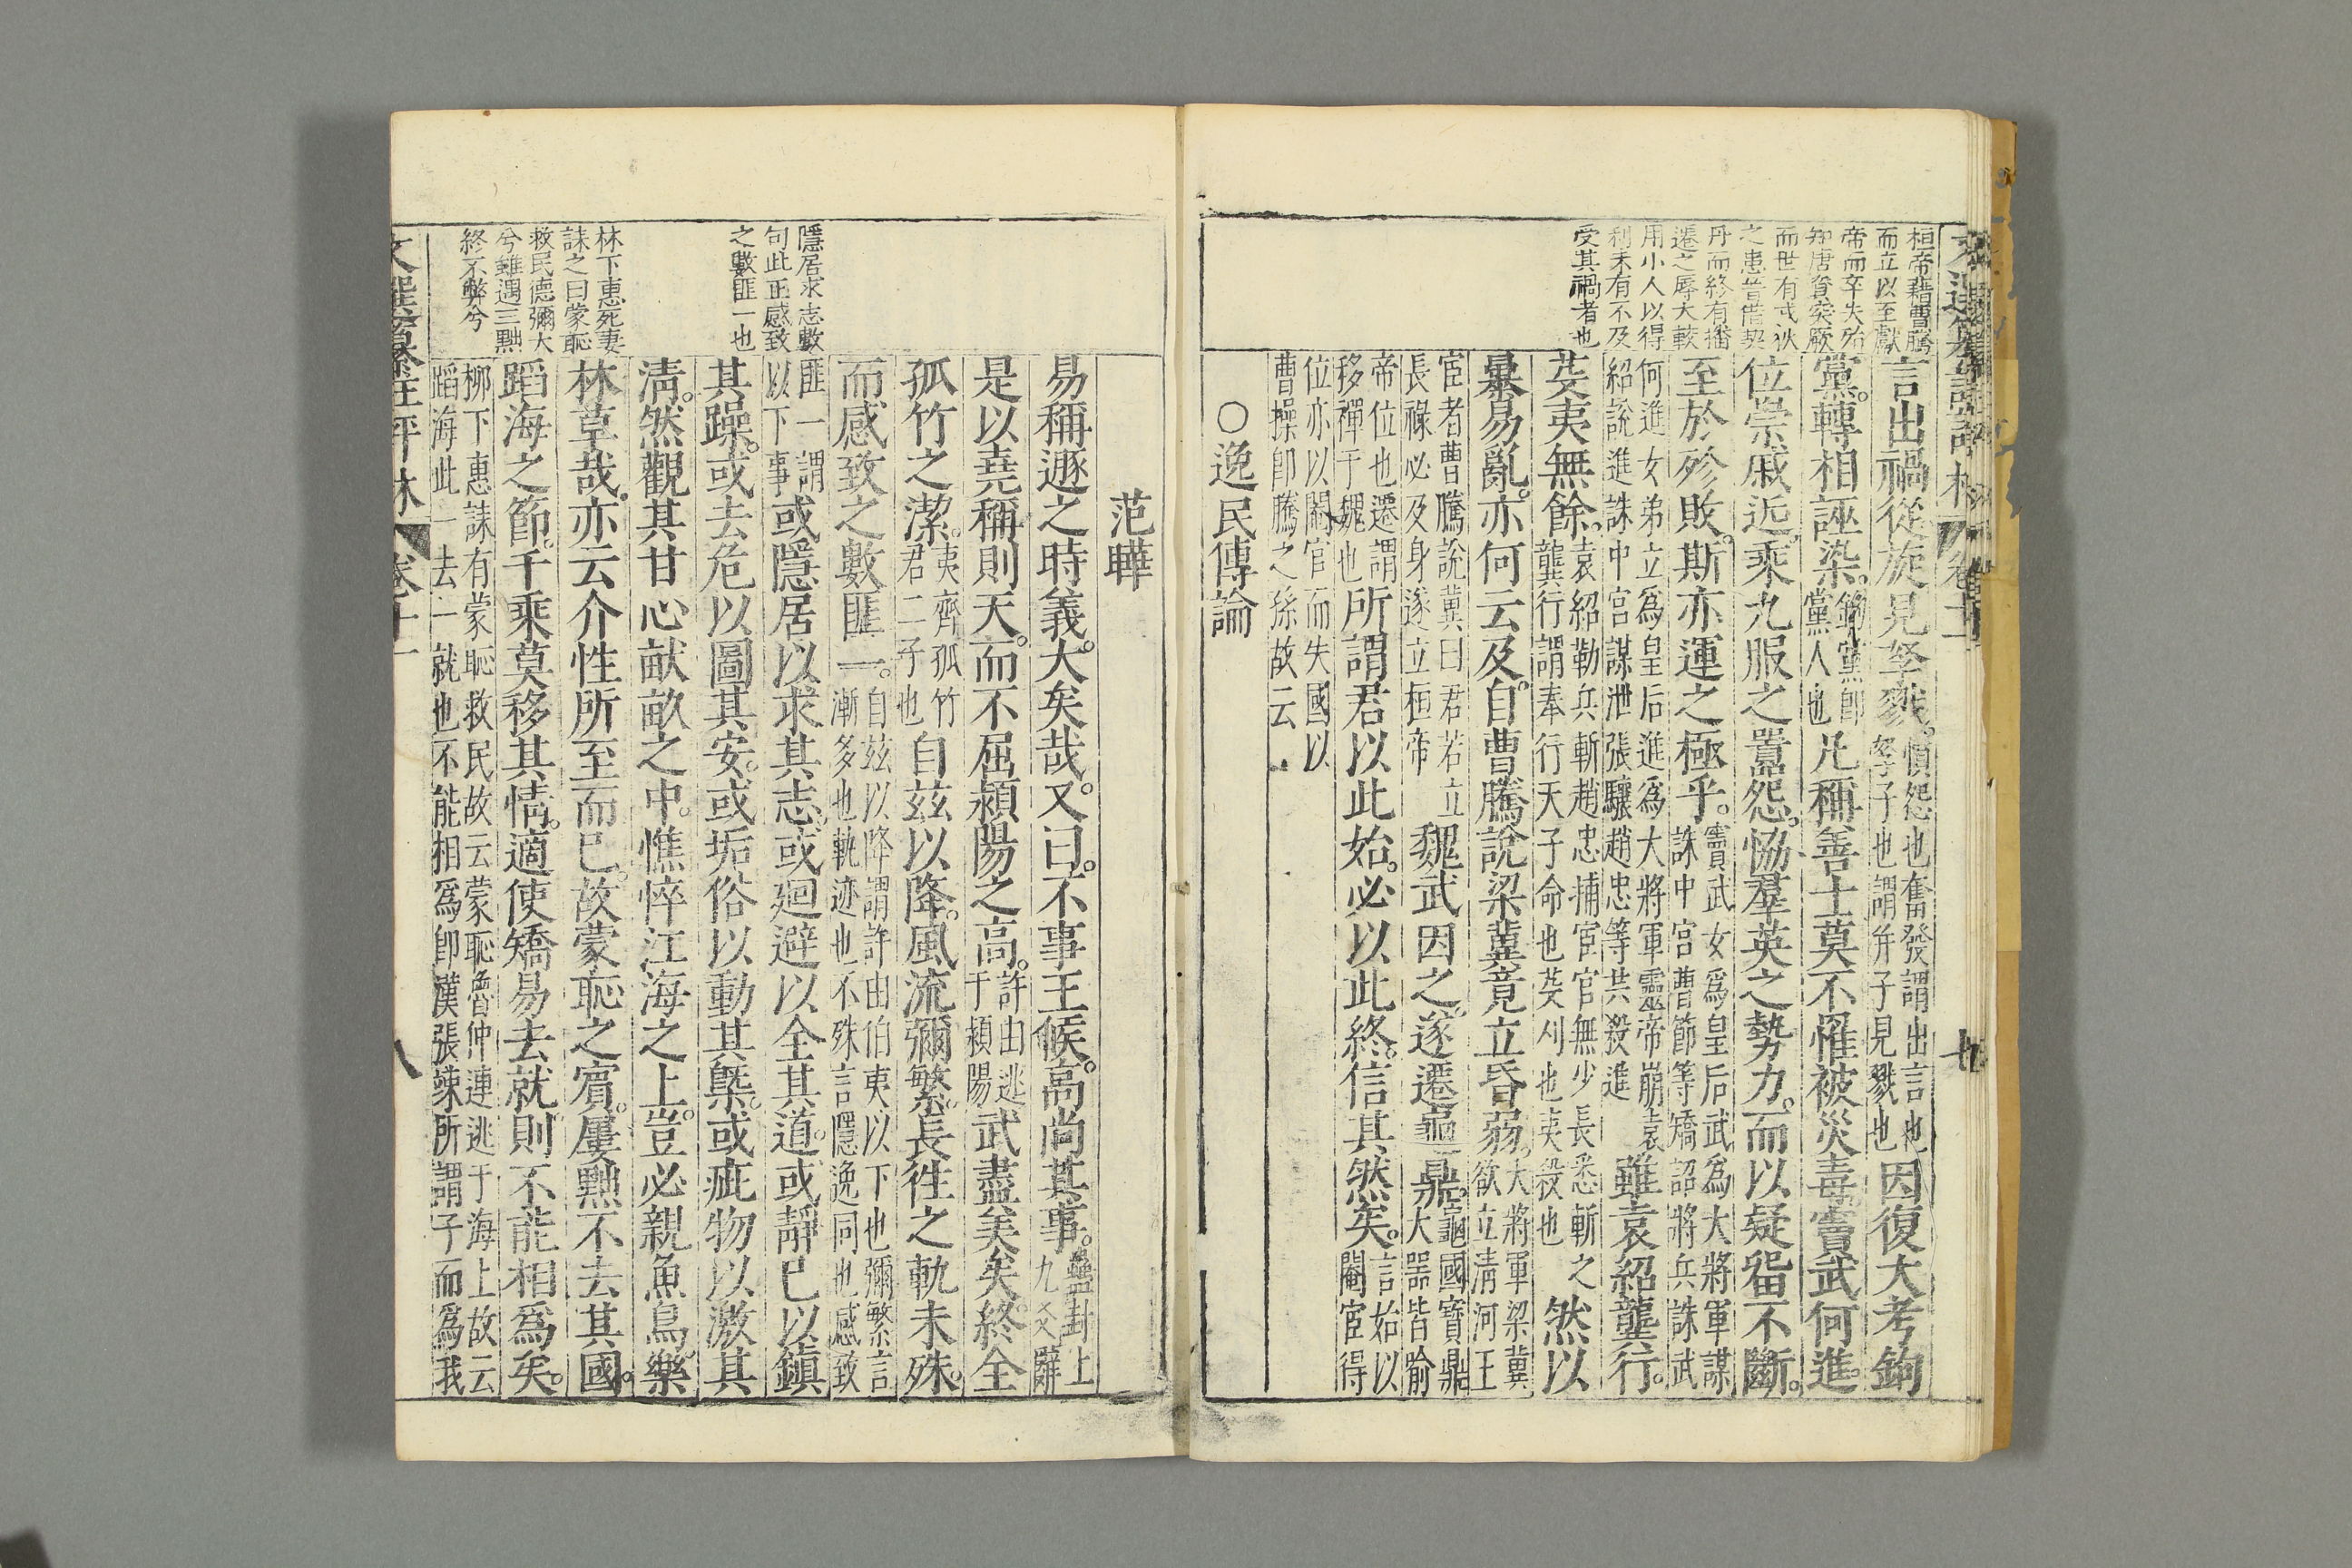 桓帝藉曹騰
而立以至獻
帝而卒失殆
知唐資突厥
而世有戎狄
之患晉借契
丹而終有播
遷之辱大較
用小人以得
利未有不及
受其禍者也
言出禍從旋見孥戮。憤怨也奮發謂出言也孥子也謂并子見戮也因復大考鉤
黨。轉相誣染。鉤黨卽黨人也凡稱善士莫不罹被災毒竇武何進。
位崇戚近。乘九服之囂怨。恊羣英之勢力。而以疑留不斷。
至於殄敗。斯亦運之極乎。竇武女爲皇后武爲大將軍謀誅中宮曹節等矯詔將兵誅武
何進女弟立爲皇后進爲大將軍靈帝崩袁紹說進誅中宮謀泄張驤趙忠等共殺進雖袁紹龔行。
芟夷無餘。袁紹勒兵斬趙忠捕宦官無少長悉斬之龔行謂奉行天子命也芟刈也夷殺也然以
暴易亂。亦何云及。自曹騰說梁冀竟立昏弱。大將軍梁冀欲立淸河王
宦者曹騰說冀曰君若立長祿必及身遂立桓帝魏武因之。遂遷龜鼎。龜國寶鼎大噐皆喻
帝位也遷謂移禪于魏也所謂君以此始。必以此終。信其然矣。言始以閹宦得
位亦以閹官而失國以曹操卽騰之孫故云
○逸民傳論
范曄
易稱遯之時義。大矣哉。又曰。不事王候。高尚其事。蠱卦上九爻辭
是以堯稱則天。而不屈潁陽之高。許由逃于潁陽武盡美矣。終全
孤竹之潔。夷齊孤竹君二子也自茲以降。風流彌繁。長徃之軌未殊。
而感致之數匪一。自茲以降謂許由伯夷以下也彌繁言漸多也軌迹也不殊言隱逸同也感致
匪一謂以下事或隱居以求其志。或廻避以全其道。或靜巳以鎭
其躁。或去危以圖其安。或垢俗以動其槩。或疵物以激其
淸。然觀其甘心畎畝之中。憔悴江海之上。豈必親魚鳥。樂
林草哉。亦云介性所至而巳。故蒙恥之賓。屢黜不去其國。
蹈海之節。千乘莫移其情。適使矯易去就。則不能相爲矣。
柳下惠誄有蒙恥救民故云蒙恥魯仲連逃于海上故云蹈海此一去一就也不能相爲卽漢張竦所謂子而爲我
隱居求志數
句此正感致
之數匪一也
林下惠死妻
誄之曰蒙恥
救民德彌大
兮雖遇三黜
終不弊兮
卷十一
八